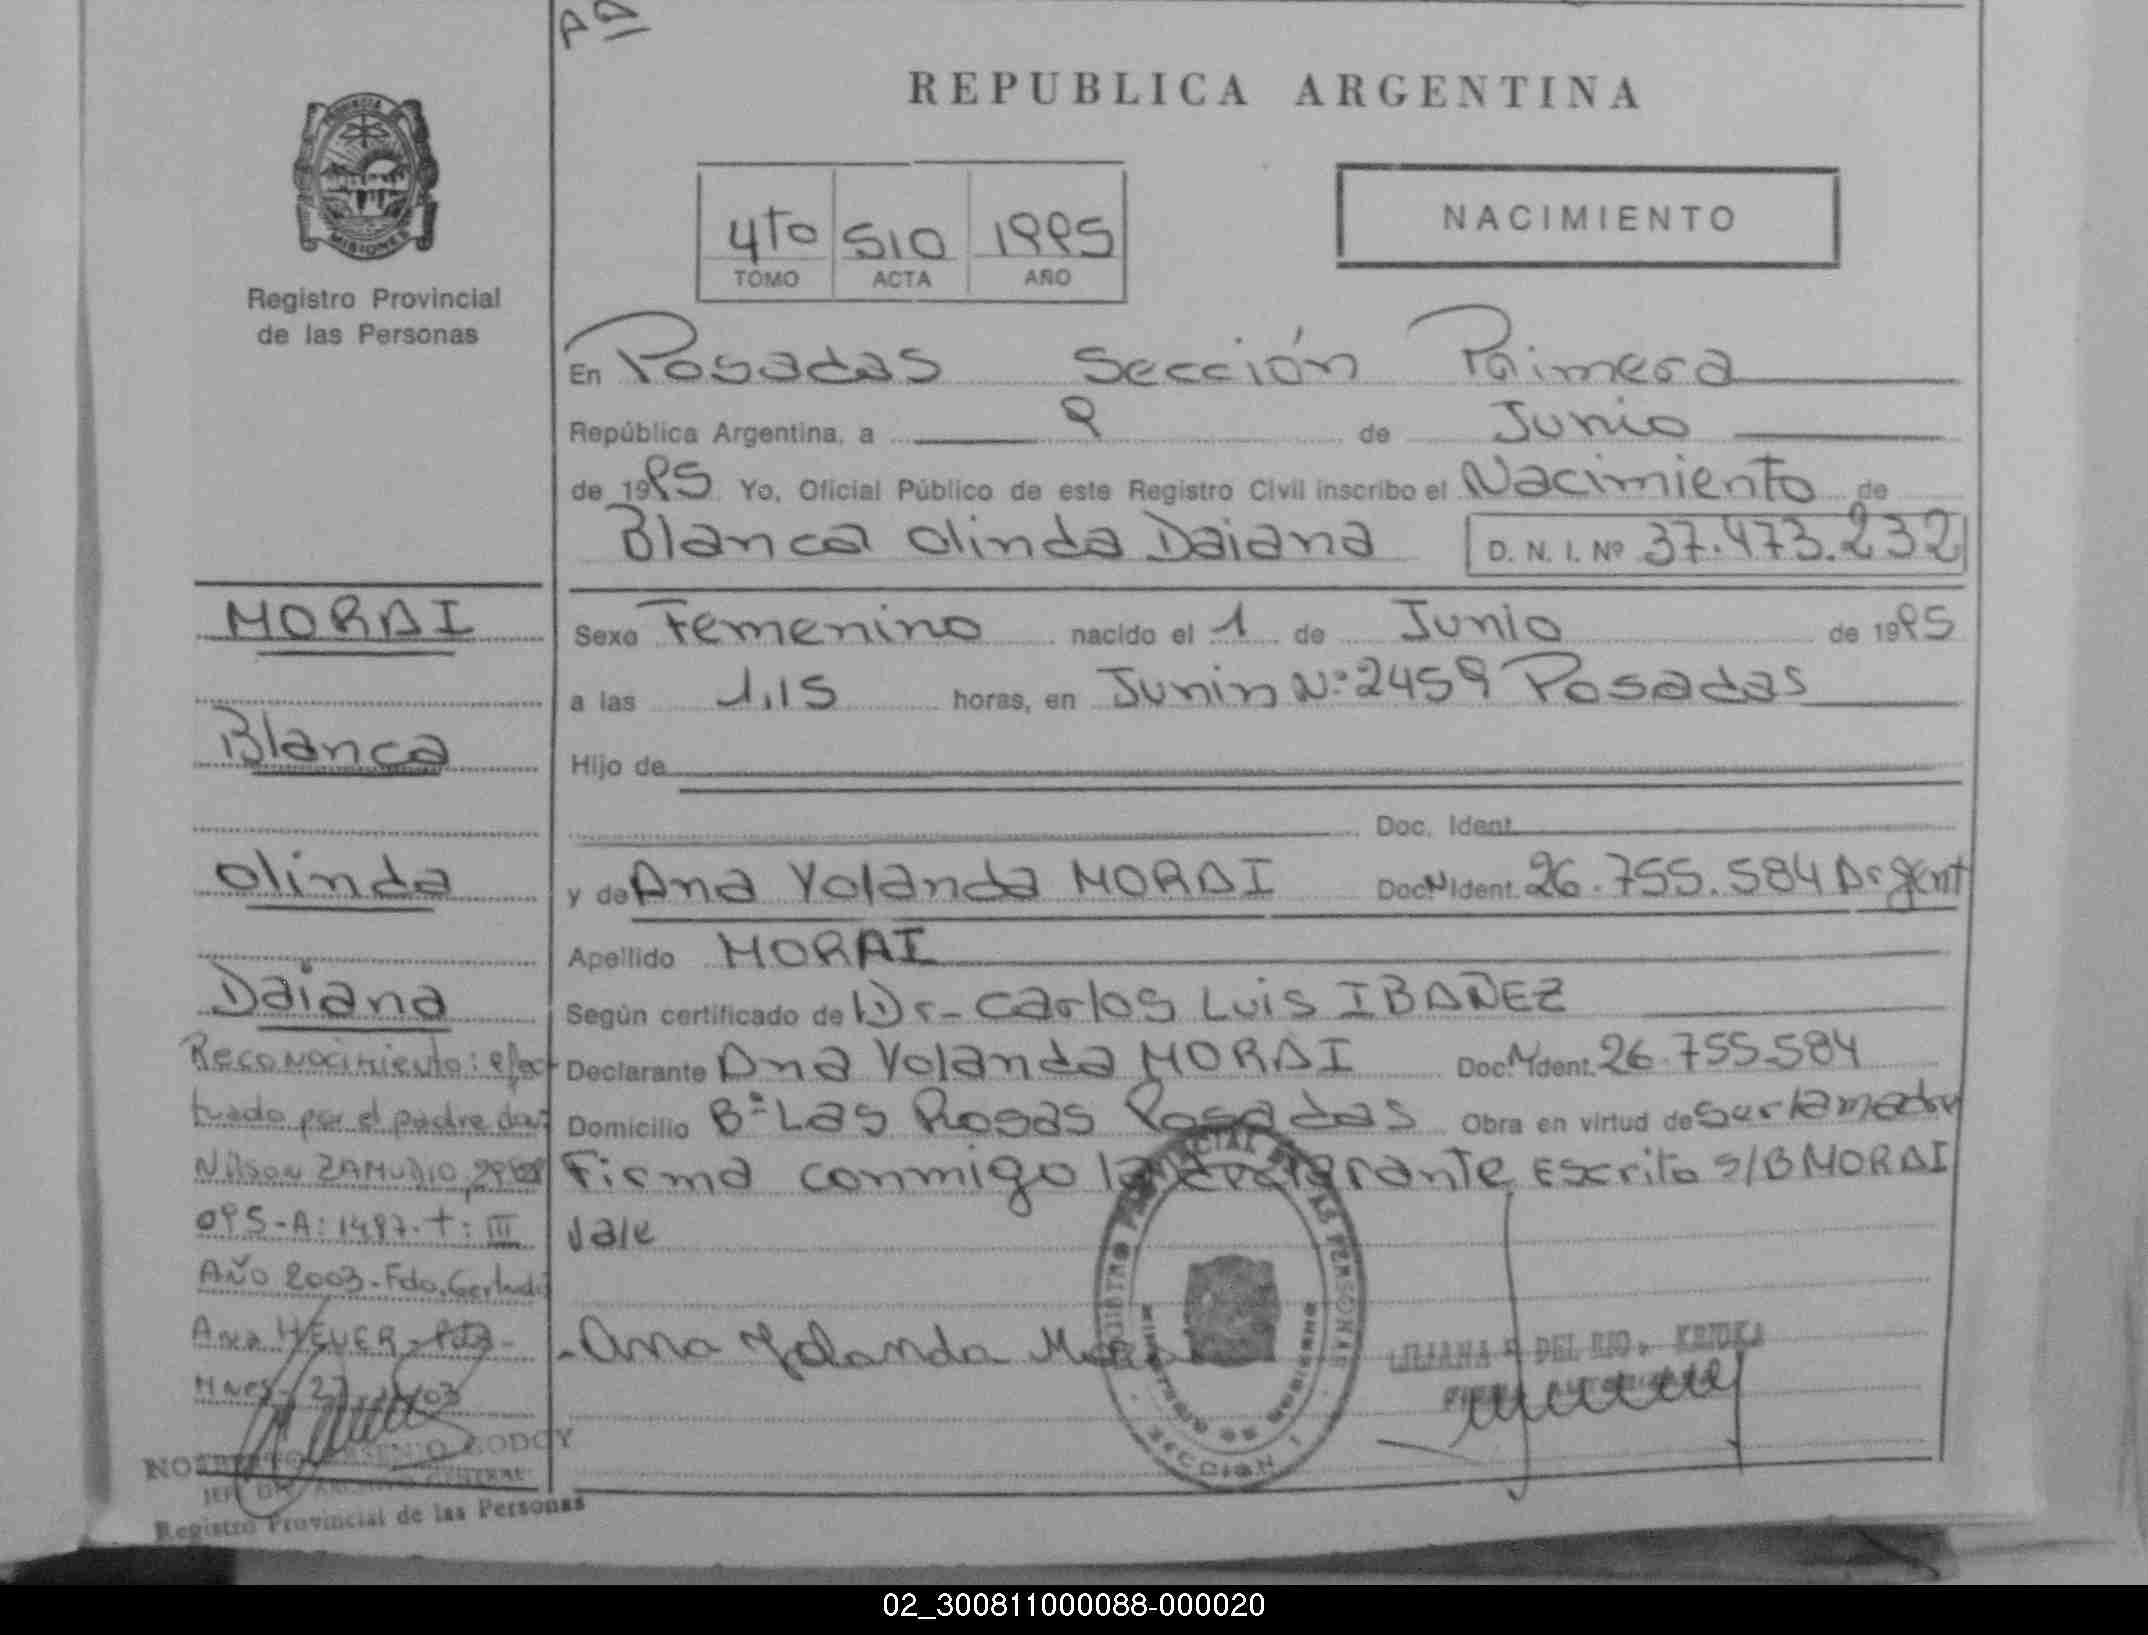 REPUBLICA ARGENTINA
PROVINCIA
MISIONES
Registro Provincial
de las Personas
4to 510 1995
TOMO ACTA AÑO
NACIMIENTO
En Posadas Sección Primera
República Argentina, a 9 de Junio
de 1995 Yo, Oficial Público de este Registro Civil inscribo el Nacimiento de
Blanca Olinda Daiana D. N. I. Nº 37.473.232
Sexo Femenino nacido el 1 de Junio de 1995
a las 1,15 horas, en Junin Nº 2459 Posadas
Hijo de
Doc. Ident.
y de Ana Yolanda MORAI Doc. Ident. 26.755.584 Argent
Apellido MORAI
Según certificado de Dr- Carlos Luis IBAÑEZ
Declarante Ana Yolanda MORAI Doc. Ident. 26.755.584
Domicilio Bº Las Rosas Posadas Obra en virtud de ser la madre
Firma conmigo la declarante Escrito s/B MORAI
vale
Ana Yolanda
LILIANA DEL RIO
SECCION 1
MORAI
Blanca
Olinda
Daiana
Reconocimiento: efec
tuado por el padre don
Nilson ZAMUDIO
095-A: 1497. T: III
AÑO 2003- Fdo. Gertrudis
Ana HEUER
Mnes- 03
GODOY
Registro Provincial de las Personas
02_300811000088-000020